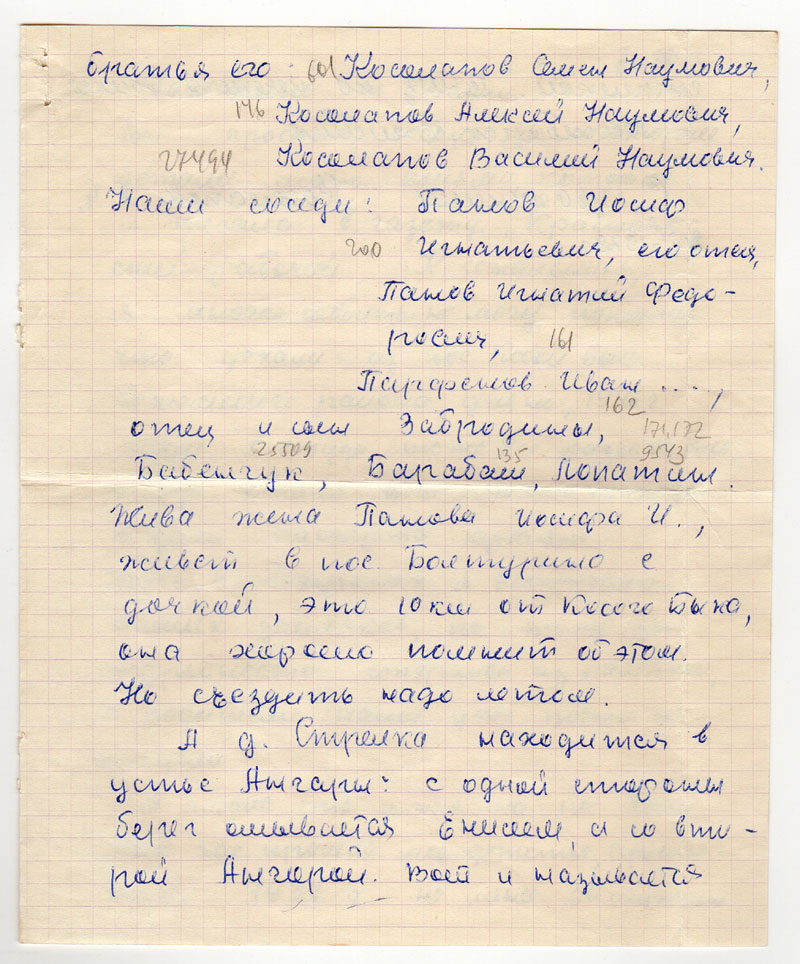 братья его 601 Косолапов Семен Наумович,
146 Косолапов Алексей Наумович,
27494 Косолапов Василий Наумович.
Наши соседи: Панов Иосиф
200 Игнатьевич, его отец,
Панов Игнатий Федо-
рович, 161
Парфенов Иван ....,
162
отец и сын Забродины, 171,172
25509 135 9543
Бабенчук, Барабаш, Лопатин.
Жива жена Панова Иосифа И.,
живет в пос. Болтурино с
дочкой, это 10 км от Косого Быка,
она хорошо помнит об этом.
Но съездить надо летом.
А д. Стрелка находится в
устье Ангары: с одной стороны
берег омывается Енисеем, а со вто-
рой Ангарой. Вот и называется